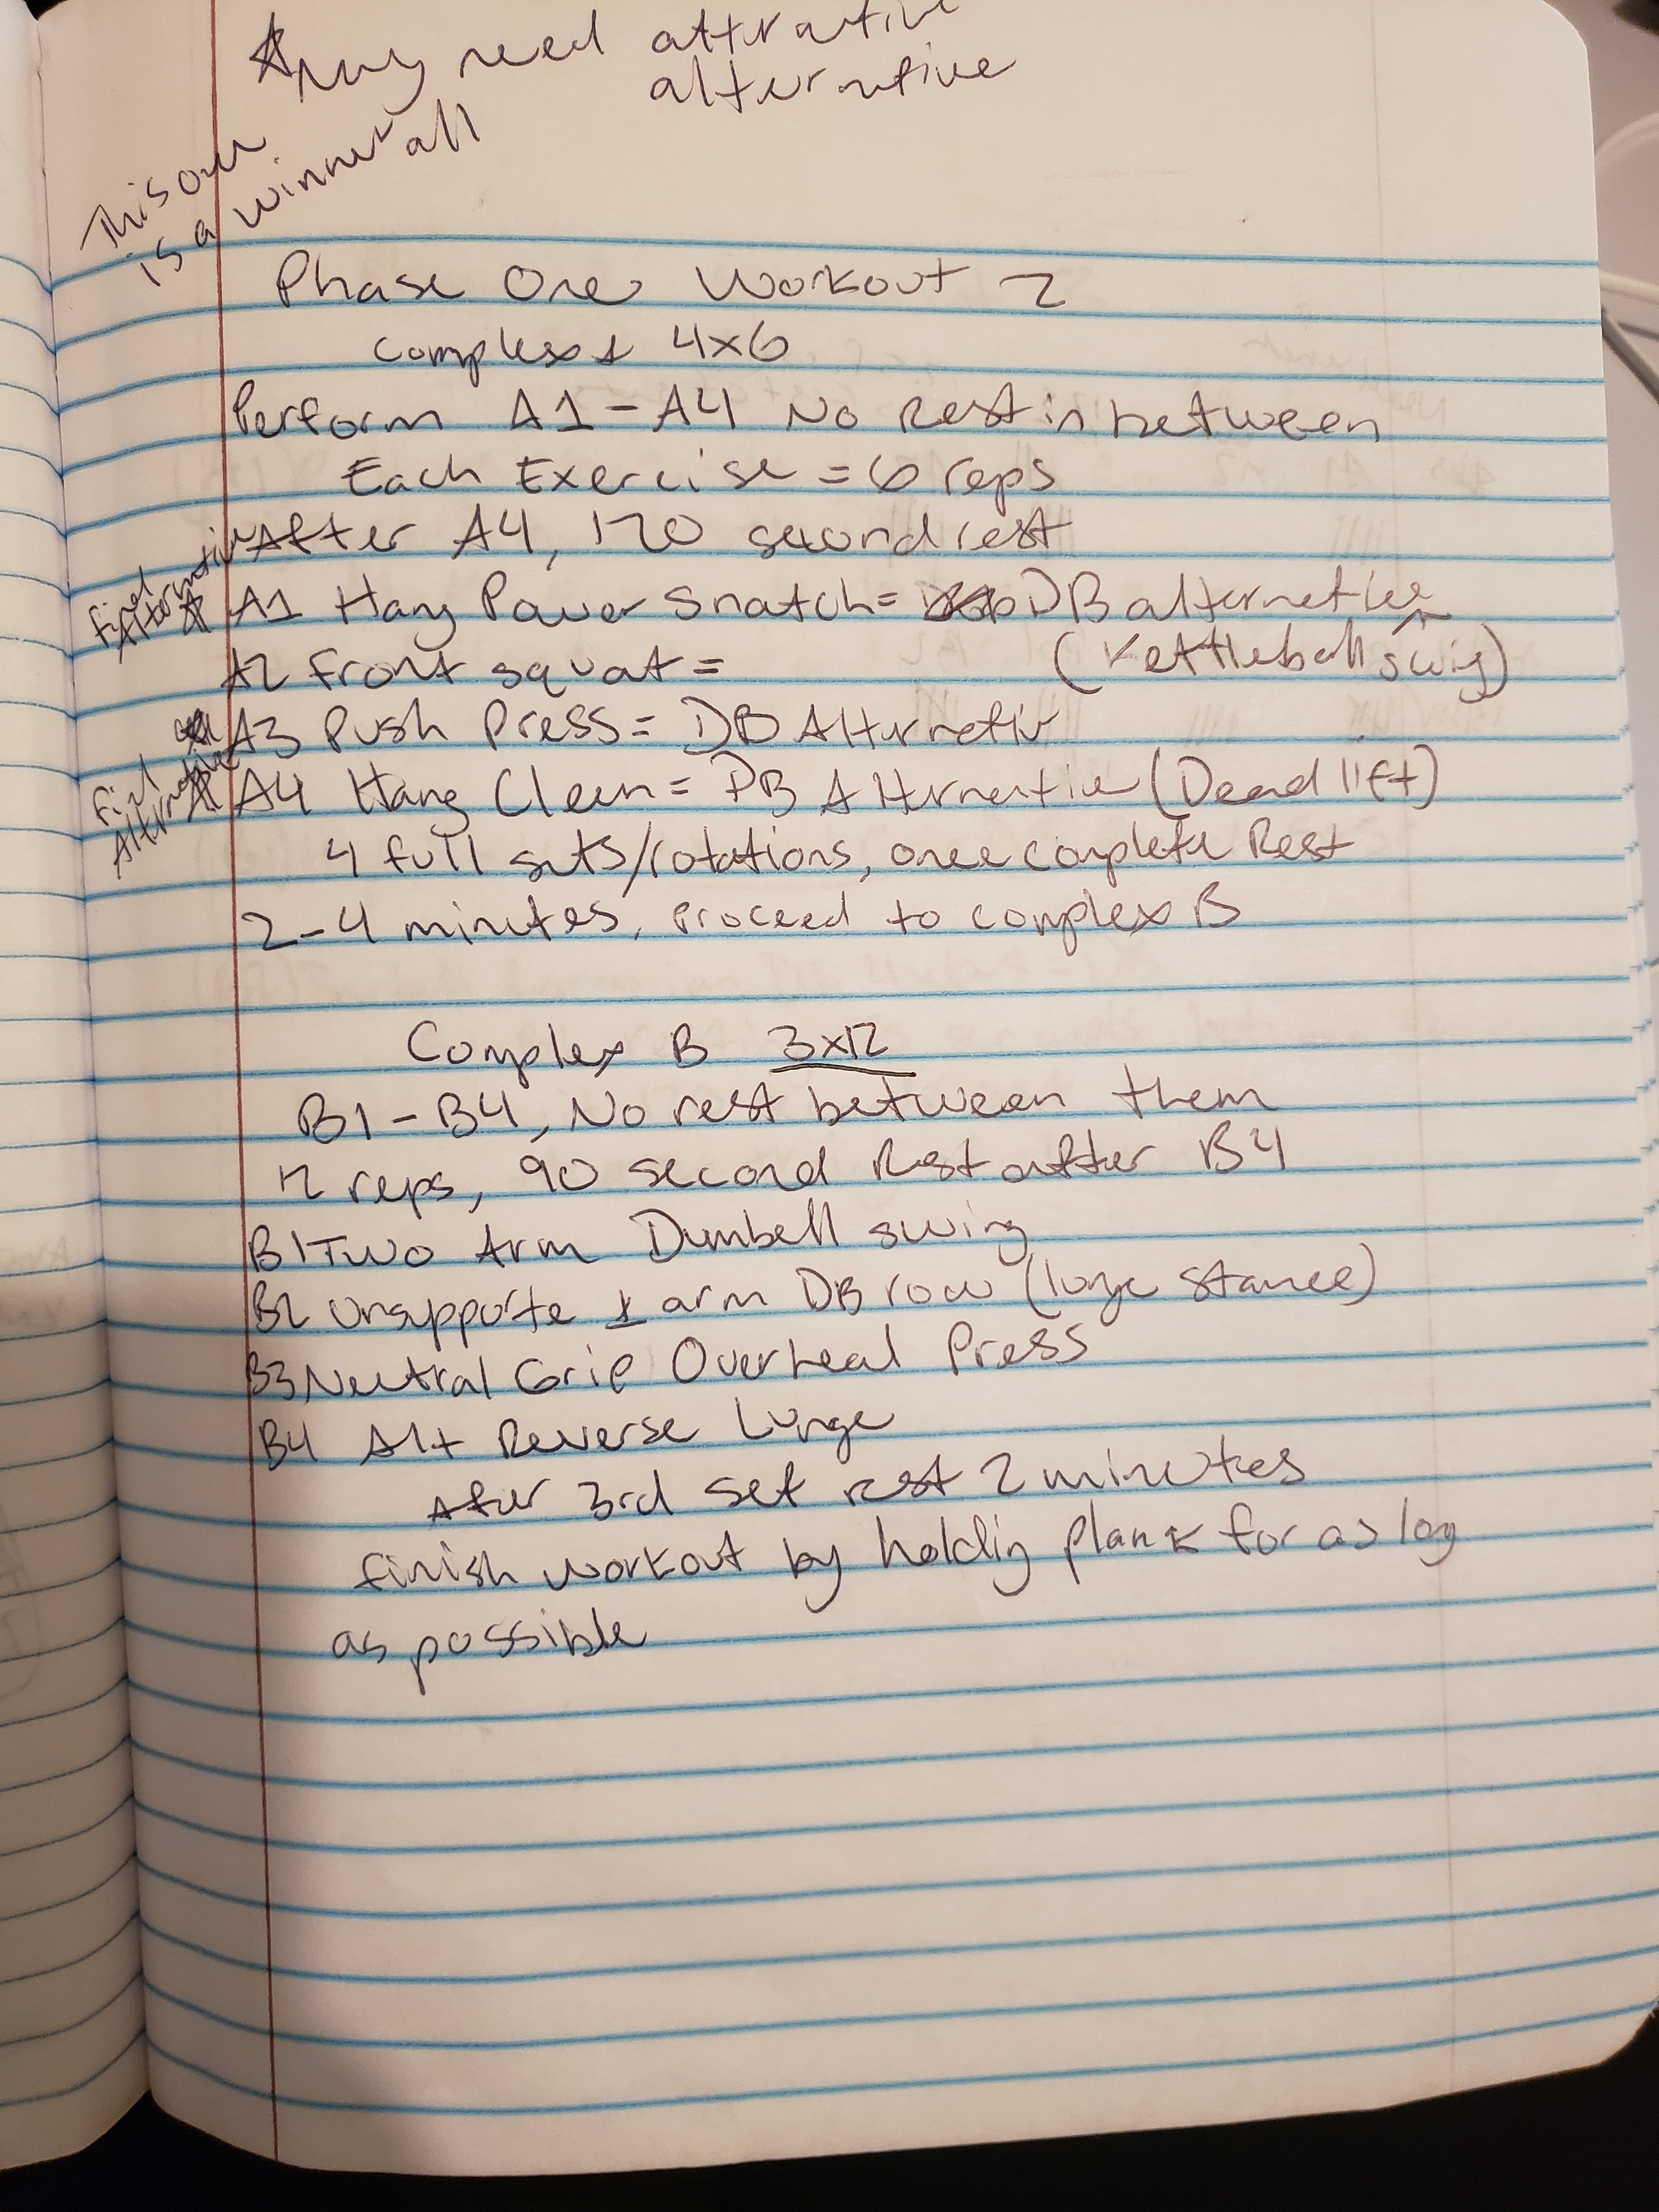 * May need attrative
alternative
This one
is a winner all
Phase One Workout 2
Complex 1 4x6
Perform A1-A4 No Rest in between
Each Exercise = 6 reps
After A4, 120 second rest
find Alternative
* A1 Hang Power Snatch = DB alternative
(Kettleball swig)
A2 front squat =
A3 Push Press = DB Alternativ
find Alternative
* A4 Hang Clean = DB Alternative (Deadlift)
4 full sets/rotations, once complete Rest
2-4 minutes, Proceed to complex B
Complex B 3x12
B1-B4, No rest between them
12 reps, 90 second Rest after B4
B1 Two Arm Dumbell swing
B2 Unsupporte 1 arm DB row (lunge stance)
B3 Neutral Grip Overhead Press
B4 Alt Reverse Lunge
After 3rd set rest 2 minutes
finish workout by holdig plank for as log
as possible